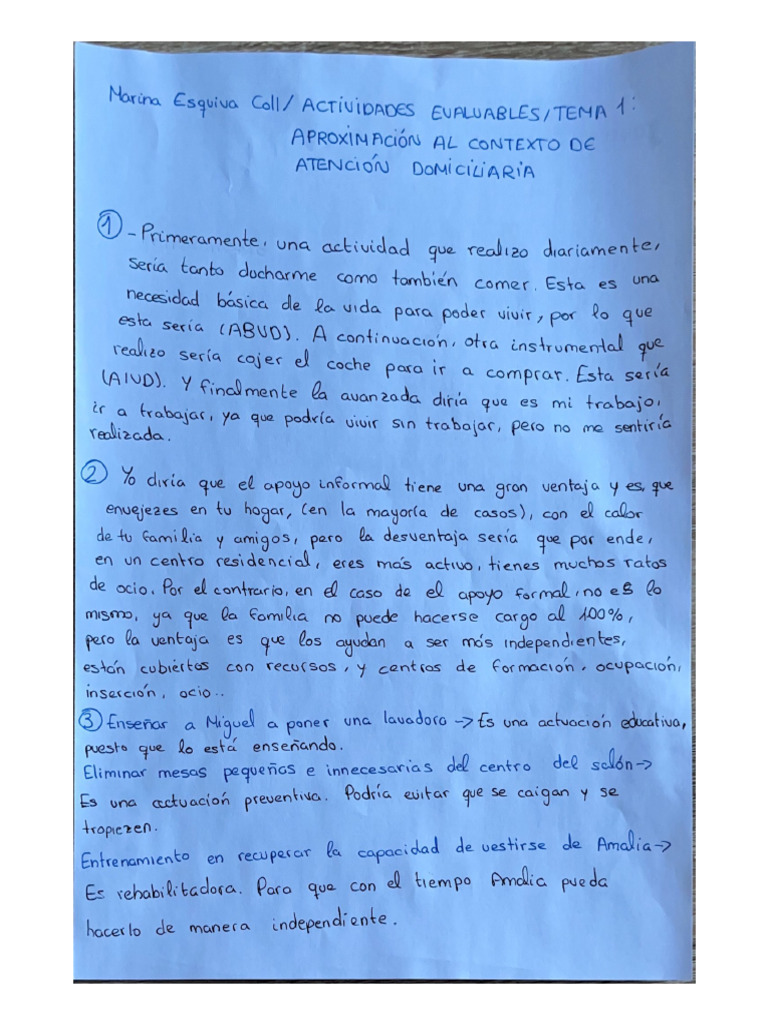 Marina Esquiva Coll/ ACTIVIDADES EVALUABLES/TEMA 1:
APROXIMACIÓN AL CONTEXTO DE
ATENCIÓN DOMICILIARIA
① - Primeramente, una actividad que realizo diariamente,
sería tanto ducharme como también comer. Esta es una
necesidad básica de la vida para poder vivir, por lo que
esta sería (ABVD). A continuación, otra instrumental que
realizo sería cojer el coche para ir a comprar. Esta sería
(AIVD). Y finalmente la avanzada diría que es mi trabajo,
ir a trabajar, ya que podría vivir sin trabajar, pero no me sentiría
realizada.
② Yo diría que el apoyo informal tiene una gran ventaja y es, que
envejezes en tu hogar, (en la mayoría de casos), con el calor
de tu familia y amigos, pero la desventaja sería que por ende,
en un centro residencial, eres más activo, tienes muchos ratos
de ocio. Por el contrario, en el caso de el apoyo formal, no es lo
mismo, ya que la familia no puede hacerse cargo al 100%,
pero la ventaja es que los ayudan a ser más independientes,
están cubiertos con recursos, y centros de formación, ocupación,
inserción, ocio..
③ Enseñar a Miguel a poner una lavadora → Es una actuación educativa,
puesto que lo está enseñando.
Eliminar mesas pequeñas e innecesarias del centro del salón →
Es una actuación preventiva. Podría evitar que se caigan y se
tropiezen.
Entrenamiento en recuperar la capacidad de vestirse de Amalia →
Es rehabilitadora. Para que con el tiempo Amalia pueda
hacerlo de manera independiente.